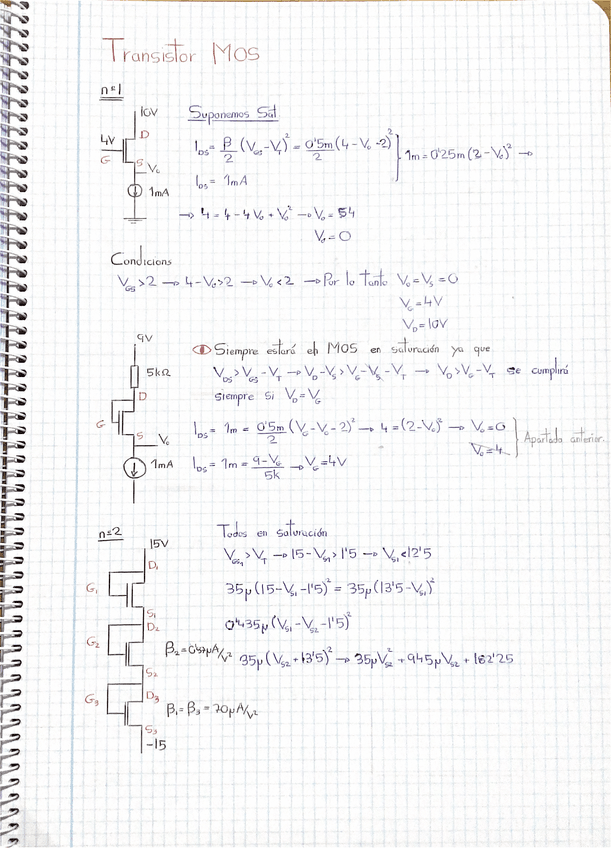 Transistor MOS
n=1
10V
D
4V
G
S
Vo
1mA
Suponemos Sat
I_DS = β/2 (V_GS - V_T)² = 0'5m/2 (4 - Vo - 2)²
I_DS = 1mA
1m = 0'25m (2 - Vo)² →
→ 4 = 4 - 4Vo + Vo² → Vo = 4
Vo = 0
Condicions
V_GS > 2 → 4 - Vo > 2 → Vo < 2 → Por lo tanto Vo = V_S = 0
V_G = 4V
V_D = 10V
9V
5kΩ
D
G
S
Vo
1mA
Siempre estará el MOS en saturación ya que
V_DS > V_GS - V_T → V_D - V_S > V_G - V_S - V_T → V_D > V_G - V_T se cumplirá
siempre si V_D = V_G
I_DS = 1m = 0'5m/2 (V_G - Vo - 2)² → 4 = (2 - Vo)² → Vo = 0
Vo = 4
Apartado anterior.
I_DS = 1m = 9 - V_G/5k → V_G = 4V
n=2
15V
D₁
G₁
S₁
D₂
G₂
S₂
D₃
G₃
S₃
-15
β₁ = β₃ = 70μA/V²
Todos en saturación
V_GS1 > V_T → 15 - V_S1 > 1'5 → V_S1 < 12'5
35μ (15 - V_S1 - 1'5)² = 35μ (13'5 - V_S1)²
0'435μ (V_S1 - V_S2 - 1'5)²
35μ (V_S2 + 13'5)² → 35μV_S2² + 945μV_S2 + 182'25